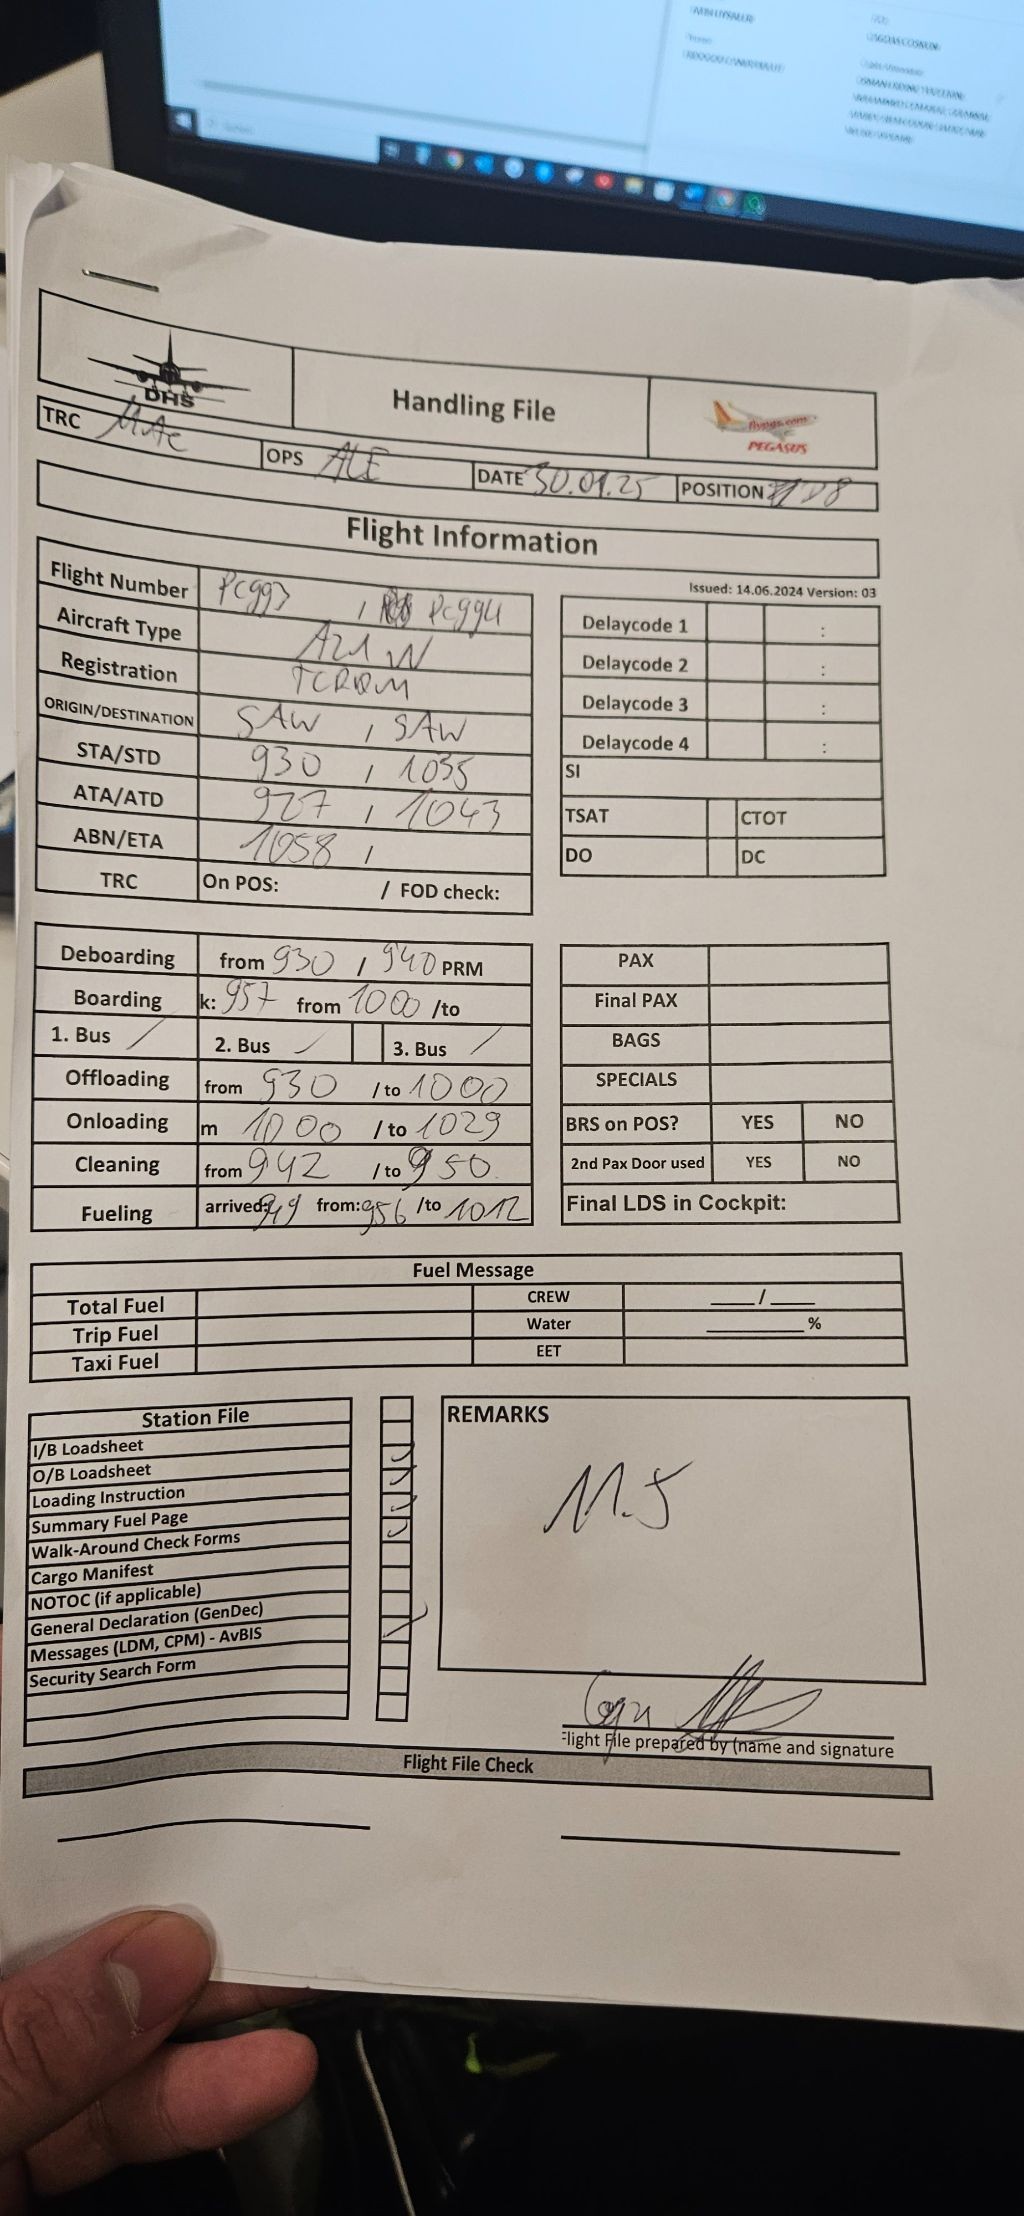 DHS
Handling File
flypgs.com
PEGASUS
TRC MAE
OPS ALE
DATE 30.01.25
POSITION D8
Flight Information
Issued: 14.06.2024 Version: 03
Flight Number PC993 / PC994
Aircraft Type A21W
Registration TCRDM
ORIGIN/DESTINATION SAW / SAW
STA/STD 930 / 1035
ATA/ATD 927 / 1043
ABN/ETA 1058 /
TRC On POS: / FOD check:
Delaycode 1 :
Delaycode 2 :
Delaycode 3 :
Delaycode 4 :
SI
TSAT CTOT
DO DC
Deboarding from 930 / 940 PRM
Boarding k: 957 from 1000 /to
1. Bus / 2. Bus / 3. Bus /
Offloading from 930 /to 1000
Onloading m 1000 /to 1029
Cleaning from 942 /to 950
Fueling arrived: 949 from: 956 /to 1012
PAX
Final PAX
BAGS
SPECIALS
BRS on POS? YES NO
2nd Pax Door used YES NO
Final LDS in Cockpit:
Fuel Message
Total Fuel CREW ____/____
Trip Fuel Water ________%
Taxi Fuel EET
Station File
I/B Loadsheet
O/B Loadsheet
Loading Instruction
Summary Fuel Page
Walk-Around Check Forms
Cargo Manifest
NOTOC (if applicable)
General Declaration (GenDec)
Messages (LDM, CPM) - AvBIS
Security Search Form
REMARKS
M.5
Flight File prepared by (name and signature
Flight File Check